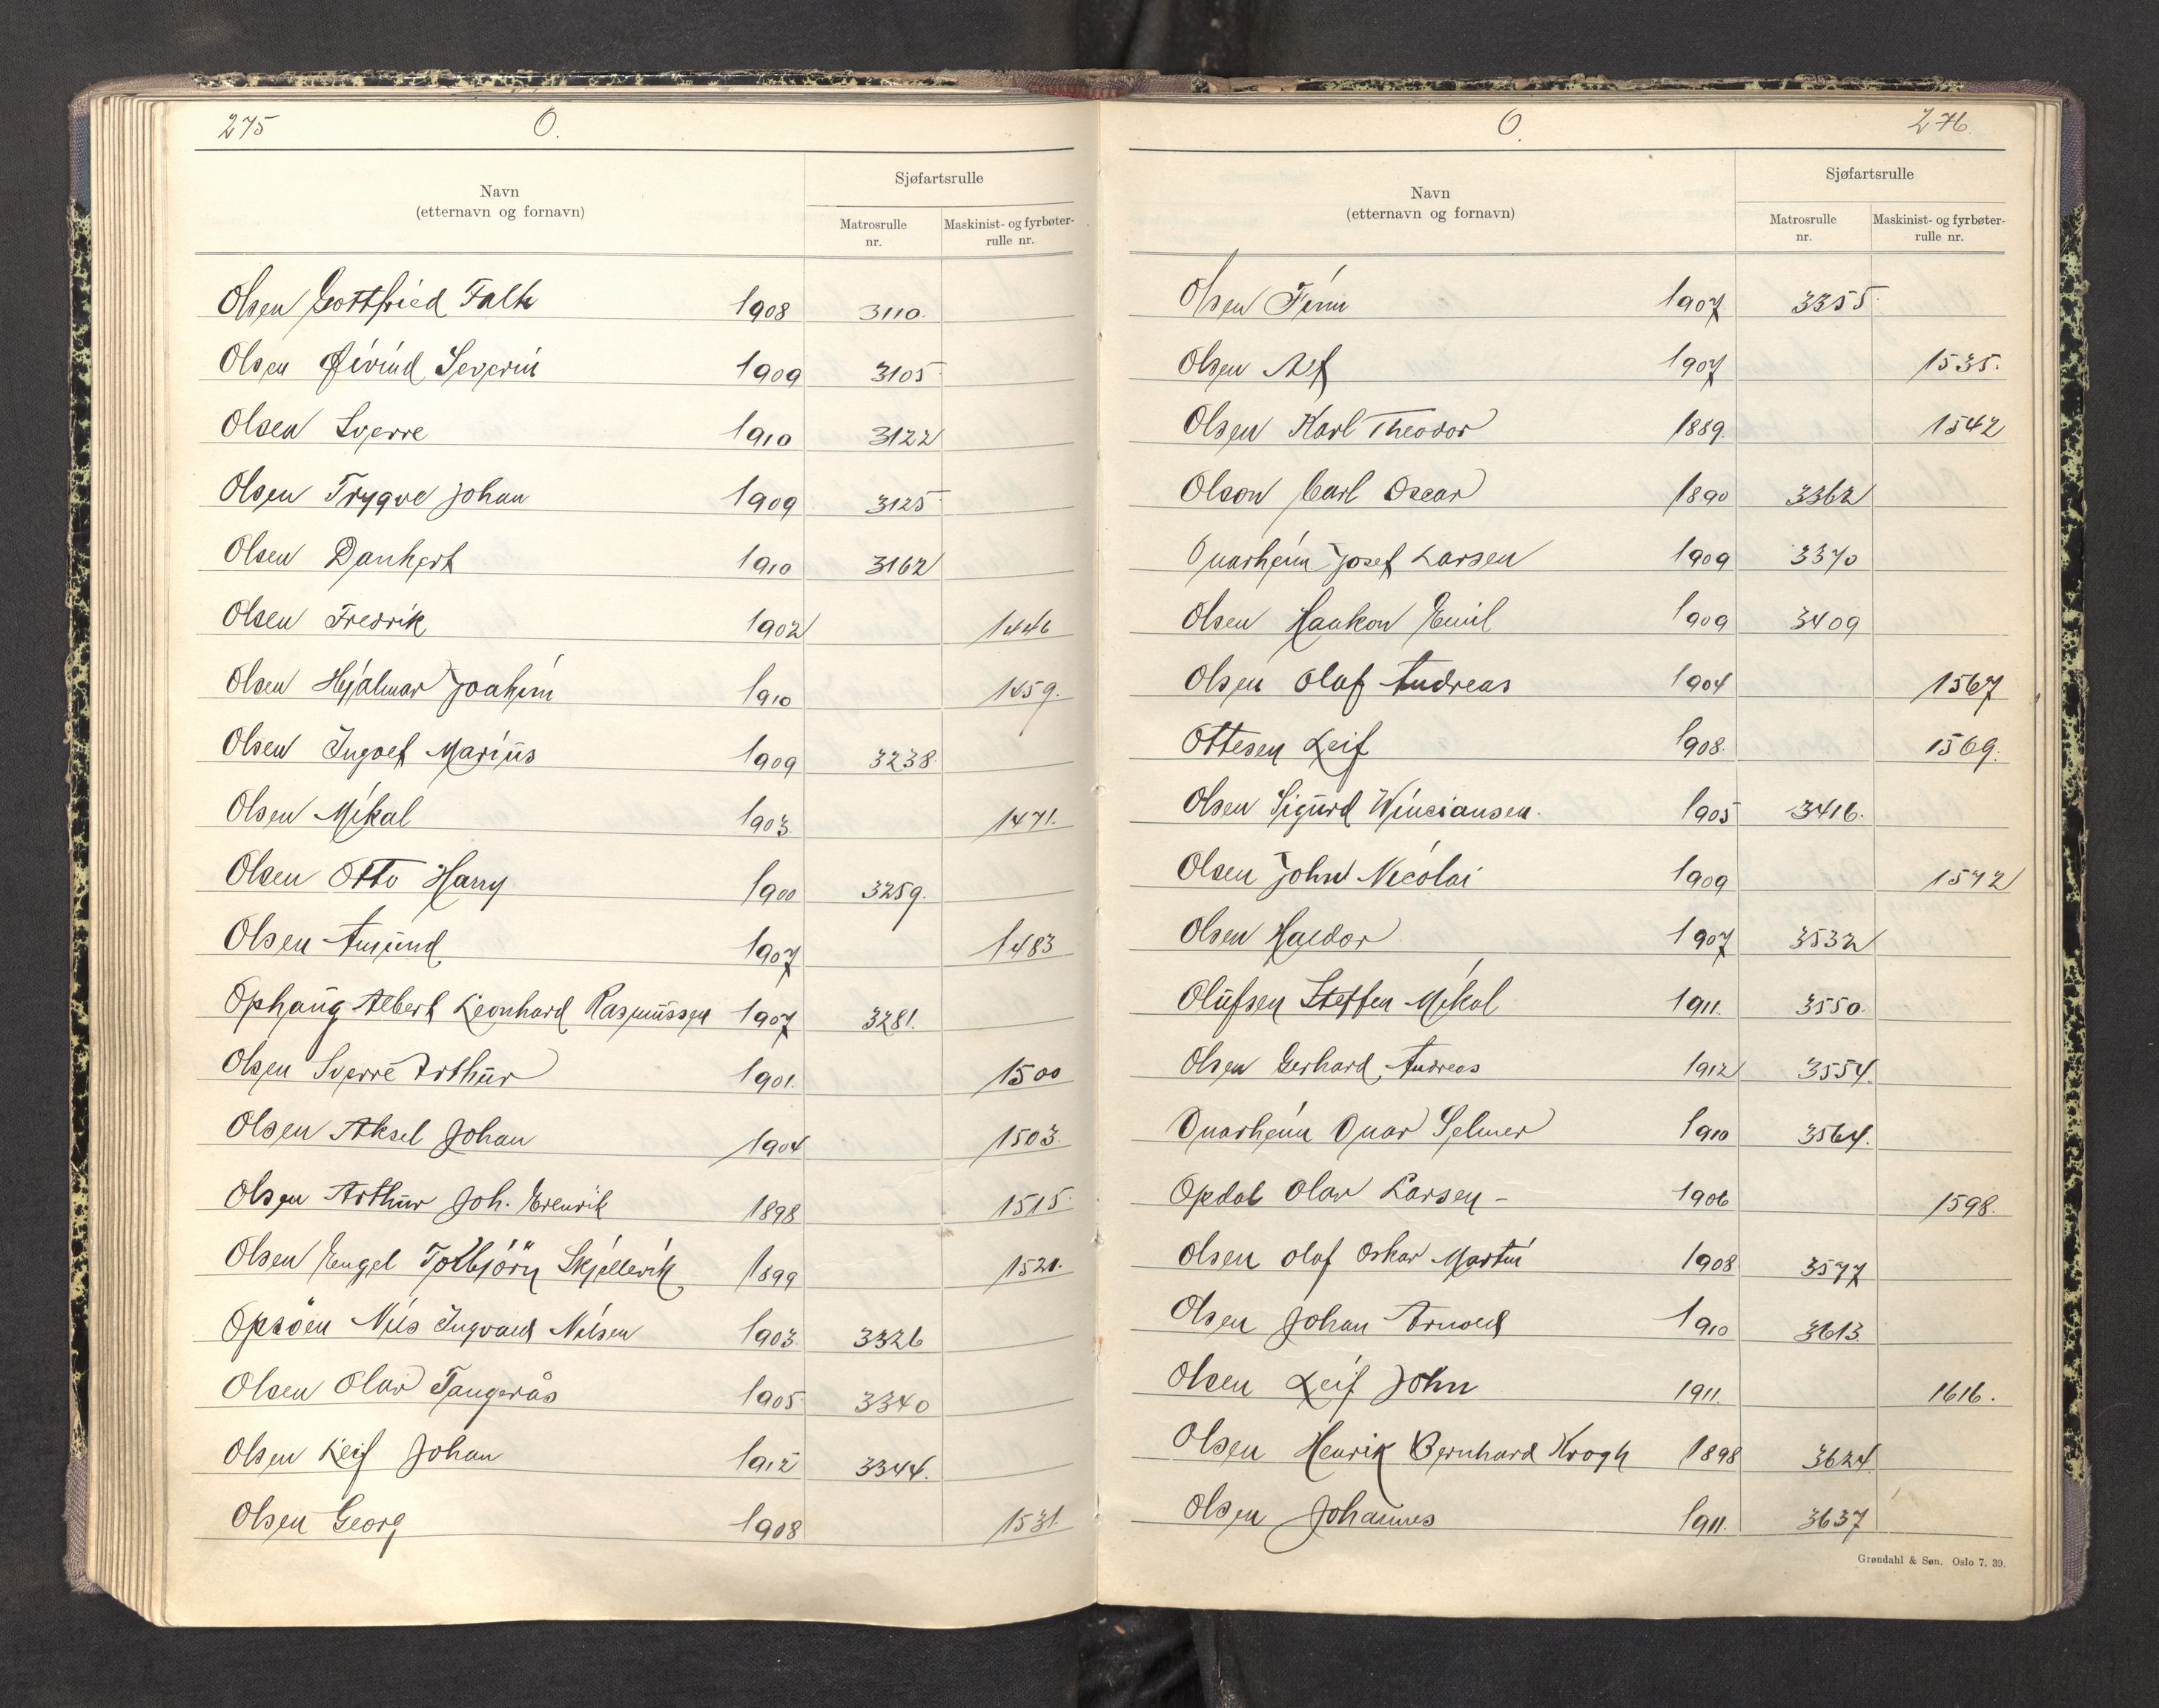 275 O.
Navn
(etternavn og fornavn)
Sjøfartsrulle
Matrosrulle nr.
Maskinist- og fyrbøter-rulle nr.
Olsen Gottfried Falk 1908 3110.
Olsen Øivind Severin 1909 3105
Olsen Sverre 1910 3122
Olsen Trygve Johan 1909 3125
Olsen Dankert 1910 3162
Olsen Fredrik 1902 1446
Olsen Hjalmar Joakim 1910 1459.
Olsen Ingolf Marius 1909 3238.
Olsen Mikal 1903. 1471.
Olsen Otto Harry 1900 3259.
Olsen Amund 1907 1483
Ophaug Albert Leonhard Rasmussen 1907 3281.
Olsen Sverre Arthur 1901. 1500
Olsen Aksel Johan 1904 1503.
Olsen Arthur Joh. 1898 1515.
Olsen Engel Torbjörn Skjellevik 1899 1521.
Opsöen Nils Ingvald Nilsen 1903. 3326
Olsen Olav Tangerås 1905. 3340
Olsen Leif Johan 1912 3344.
Olsen Georg 1908 1531.
O. 276.
Navn
(etternavn og fornavn)
Sjøfartsrulle
Matrosrulle nr.
Maskinist- og fyrbøter-rulle nr.
Olsen Finn 1907 3355.
Olsen Alf 1907 1535.
Olsen Karl Theodor 1889. 1542
Olson Carl Oscar 1890 3362
Onarheim Josef Larsen 1909 3370
Olsen Haakon Emil 1909 3409
Olsen Olaf Andreas 1904 1567
Ottesen Leif 1908. 1569.
Olsen Sigurd Winciansen. 1905 3416.
Olsen John Nicolai 1909 1572
Olsen Haldor 1907 3532
Olufsen Steffen Mikal 1911. 3550.
Olsen Gerhard Andreas 1912 3554.
Onarheim Onar Selmer 1910 3564.
Opdal Olav Larsen - 1906 1598.
Olsen Olaf Oskar Martin 1908 3577
Olsen Johan Arnold 1910 3613.
Olsen Leif John 1911. 1616.
Olsen Henrik Bernhard Krogh 1898 3624.
Olsen Johannes 1911. 3637
Grøndahl & Søn. Oslo 7. 39.